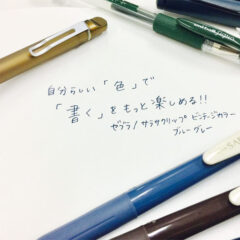 自分らしい「色」で
「書く」をもっと楽しめる!!
ゼブラ/サラサクリップ ビンテージカラー
ブルーグレー